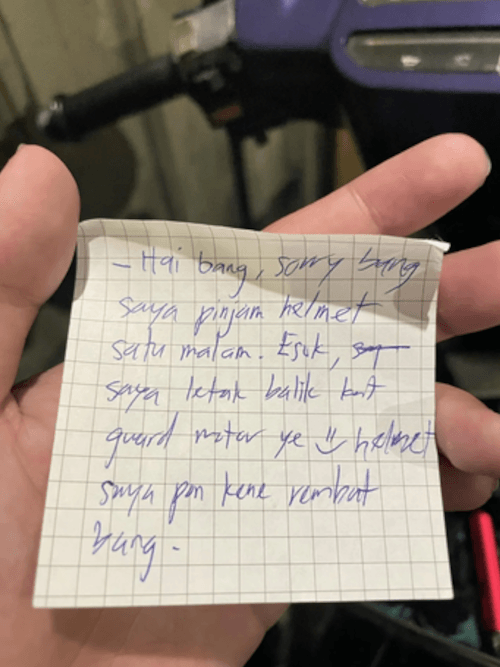 - Hai bang, sorry bang
saya pinjam helmet
satu malam. Esok,
saya letak balik kat
guard motor ye :) helmet
saya pon kene rembat
bang.